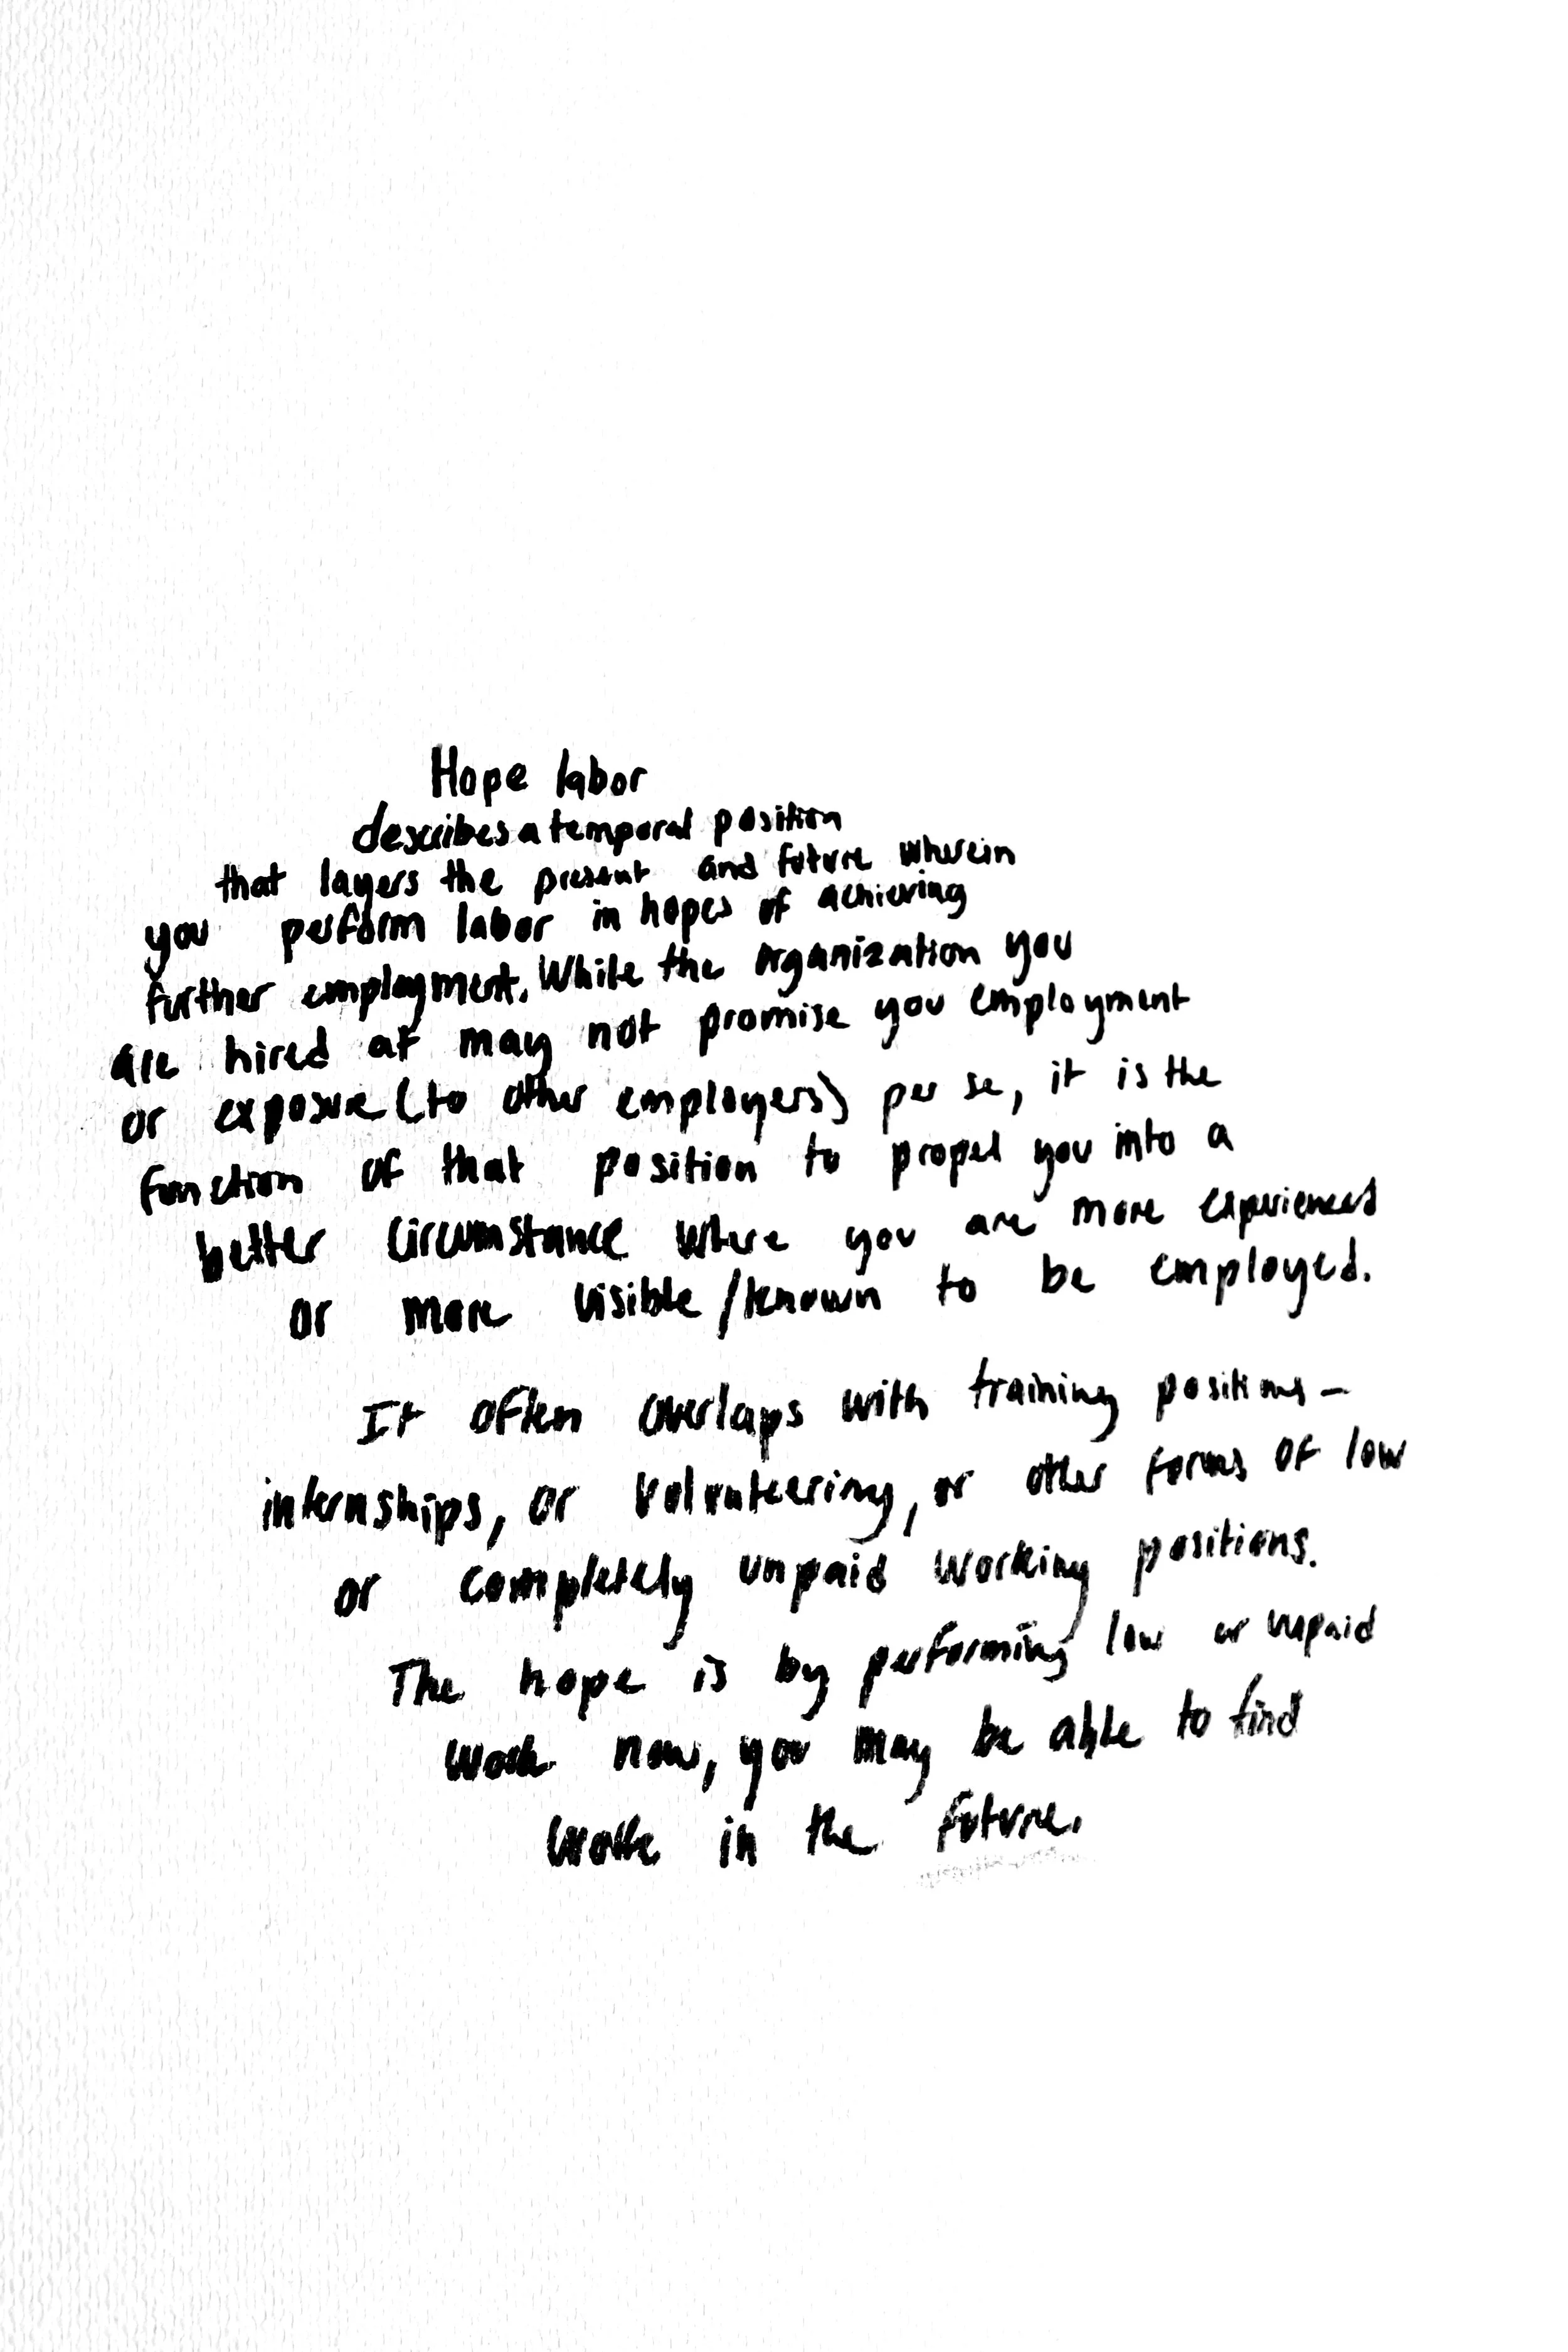 Hope labor
describes a temporal position
that layers the present and future wherein
you perform labor in hopes of achieving
further employment. While the organization you
are hired at may not promise you employment
or exposure (to other employers) per se, it is the
function of that position to propel you into a
better circumstance where you are more experienced
or more visible/known to be employed.
It often overlaps with training positions –
internships, or volunteering, or other forms of low
or completely unpaid working positions.
The hope is by performing low or unpaid
work now, you may be able to find
work in the future.